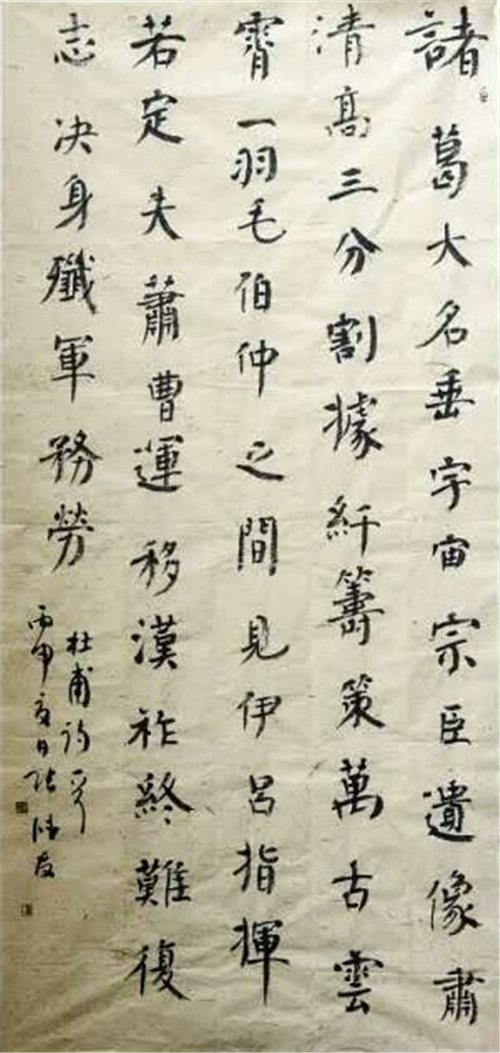 諸葛大名垂宇宙宗臣遺像肅
清高三分割據紆籌策萬古雲
霄一羽毛伯仲之間見伊呂指揮
若定失蕭曹運移漢祚終難復
志决身殲軍務勞
杜甫詩一首
丙申夏日